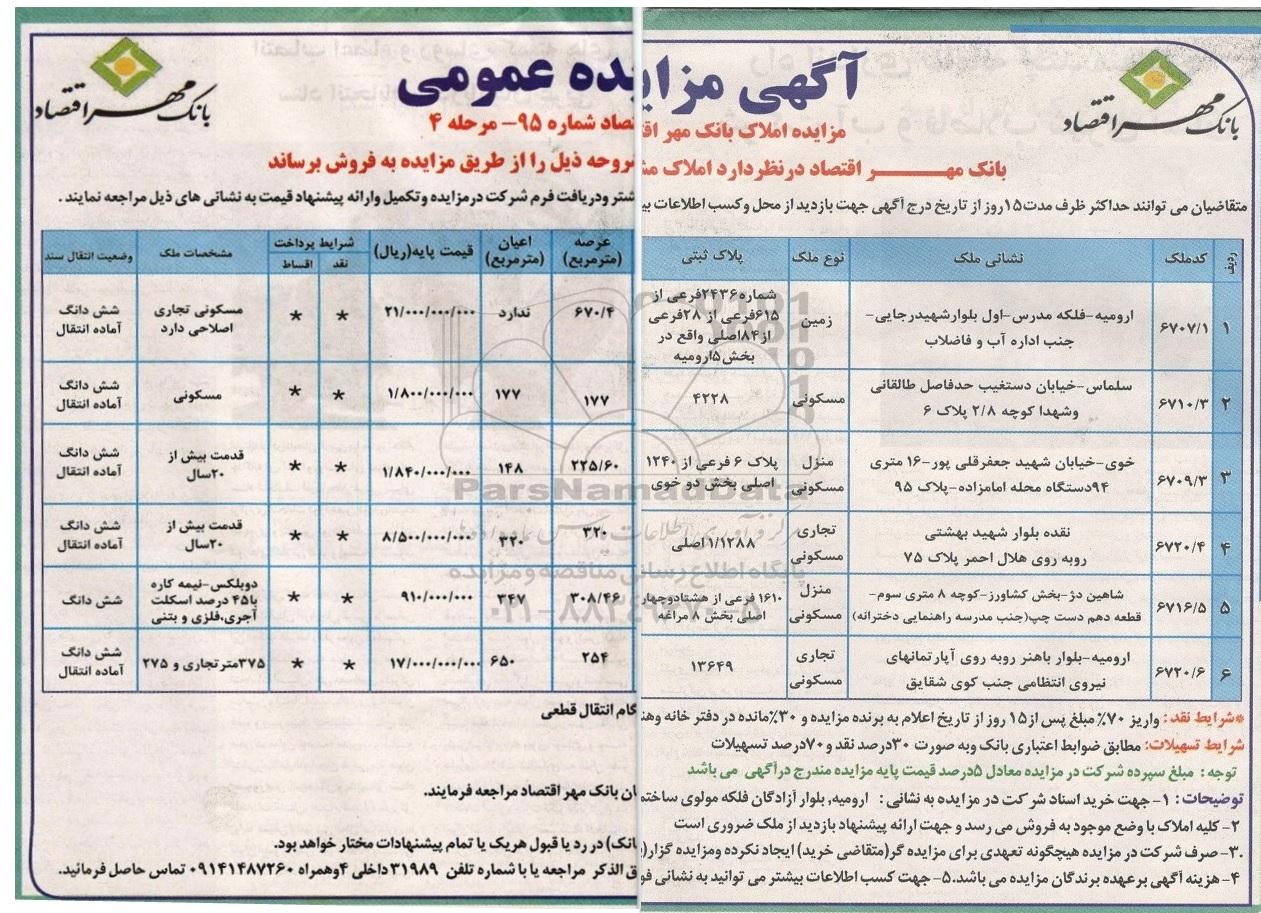 بانک مهر اقتصاد
آگهی مزایده عمومی
بانک مهر اقتصاد
مزایده املاک بانک مهر اقتصاد شماره ۹۵- مرحله ۴
بانک مهر اقتصاد درنظردارد املاک مشروحه ذیل را از طریق مزایده به فروش برساند
متقاضیان می توانند حداکثر ظرف مدت۱۵روز از تاریخ درج آگهی جهت بازدید از محل وکسب اطلاعات بیشتر ودریافت فرم شرکت درمزایده وتکمیل وارائه پیشنهاد قیمت به نشانی های ذیل مراجعه نمایند .
ردیف کدملک نشانی ملک نوع ملک پلاک ثبتی عرصه (مترمربع) اعیان (مترمربع) قیمت پایه(ریال) شرایط پرداخت نقد اقساط مشخصات ملک وضعیت انتقال سند
۱ ۶۷۰۷/۱ ارومیه-فلکه مدرس-اول بلوارشهیدرجایی- جنب اداره آب و فاضلاب زمین شماره۲۴۳۶فرعی از ۶۱۵فرعی از ۲۸فرعی از۸۴اصلی واقع در بخش۵ارومیه ۶۷۰/۴ ندارد ۲۱/۰۰۰/۰۰۰/۰۰۰ * * مسکونی تجاری اصلاحی دارد شش دانگ آماده انتقال
۲ ۶۷۱۰/۳ سلماس-خیابان دستغیب حدفاصل طالقانی وشهدا کوچه ۲/۸ پلاک ۶ مسکونی ۴۲۲۸ ۱۷۷ ۱۷۷ ۱/۸۰۰/۰۰۰/۰۰۰ * * مسکونی شش دانگ آماده انتقال
۳ ۶۷۰۹/۳ خوی-خیابان شهید جعفرقلی پور-۱۶ متری ۹۴دستگاه محله امامزاده-پلاک ۹۵ منزل مسکونی پلاک ۶ فرعی از ۱۲۴۰ اصلی بخش دو خوی ۲۲۵/۶۰ ۱۴۸ ۱/۸۴۰/۰۰۰/۰۰۰ * * قدمت بیش از ۲۰سال شش دانگ آماده انتقال
۴ ۶۷۲۰/۴ نقده بلوار شهید بهشتی روبه روی هلال احمر پلاک ۷۵ تجاری مسکونی ۱/۱۲۸۸اصلی ۳۲۰ ۳۲۰ ۸/۵۰۰/۰۰۰/۰۰۰ * * قدمت بیش از ۲۰سال شش دانگ آماده انتقال
۵ ۶۷۱۶/۵ شاهین دژ-بخش کشاورز-کوچه ۸ متری سوم- قطعه دهم دست چپ(جنب مدرسه راهنمایی دخترانه) منزل مسکونی ۱۶۱۰ فرعی از هشتادوچهار اصلی بخش ۸ مراغه ۳۰۸/۴۶ ۳۴۷ ۹۱۰/۰۰۰/۰۰۰ * * دوبلکس-نیمه کاره با۴۵ درصد اسکلت آجری،فلزی و بتنی شش دانگ
۶ ۶۷۲۰/۶ ارومیه-بلوار باهنر روبه روی آپارتمانهای نیروی انتظامی جنب کوی شقایق تجاری مسکونی ۱۳۶۴۹ ۲۵۴ ۶۵۰ ۱۷/۰۰۰/۰۰۰/۰۰۰ * * ۳۷۵مترتجاری و ۲۷۵ شش دانگ آماده انتقال
ParsNamadData
پایگاه اطلاع رسانی مناقصه و مزایده
۰۲۱-۸۸۳۴۹۶۷۰-۵
*شرایط نقد: واریز ۷۰٪ مبلغ پس از۱۵ روز از تاریخ اعلام به برنده مزایده و ۳۰٪مانده در دفتر خانه وهنگام انتقال قطعی
شرایط تسهیلات: مطابق ضوابط اعتباری بانک وبه صورت ۳۰درصد نقد و۷۰درصد تسهیلات
توجه : مبلغ سپرده شرکت در مزایده معادل ۵درصد قیمت پایه مزایده مندرج درآگهی می باشد
توضیحات : ۱- جهت خرید اسناد شرکت در مزایده به نشانی : ارومیه, بلوار آزادگان فلکه مولوی ساختمان بانک مهر اقتصاد مراجعه فرمایند.
۲- کلیه املاک با وضع موجود به فروش می رسد و جهت ارائه پیشنهاد بازدید از ملک ضروری است
۳- صرف شرکت در مزایده هیچگونه تعهدی برای مزایده گر(متقاضی خرید) ایجاد نکرده ومزایده گزار(بانک) در رد یا قبول هریک یا تمام پیشنهادات مختار خواهد بود.
۴- هزینه آگهی برعهده برندگان مزایده می باشد.۵- جهت کسب اطلاعات بیشتر می توانید به نشانی فوق الذکر مراجعه یا با شماره تلفن ۳۱۹۸۹ داخلی ۴وهمراه ۰۹۱۴۱۴۸۷۲۶۰ تماس حاصل فرمائید.